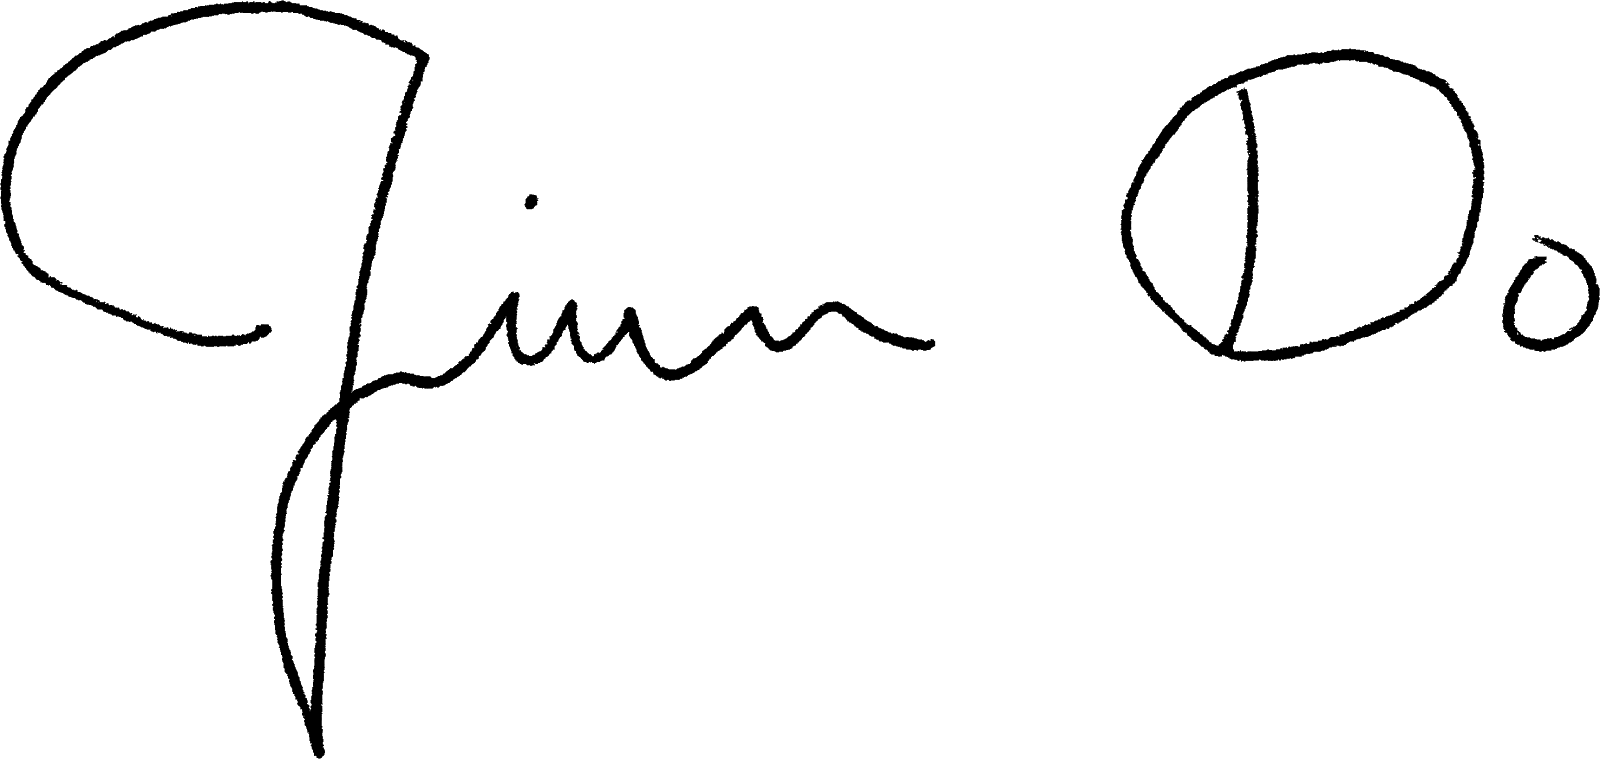 Jim Do